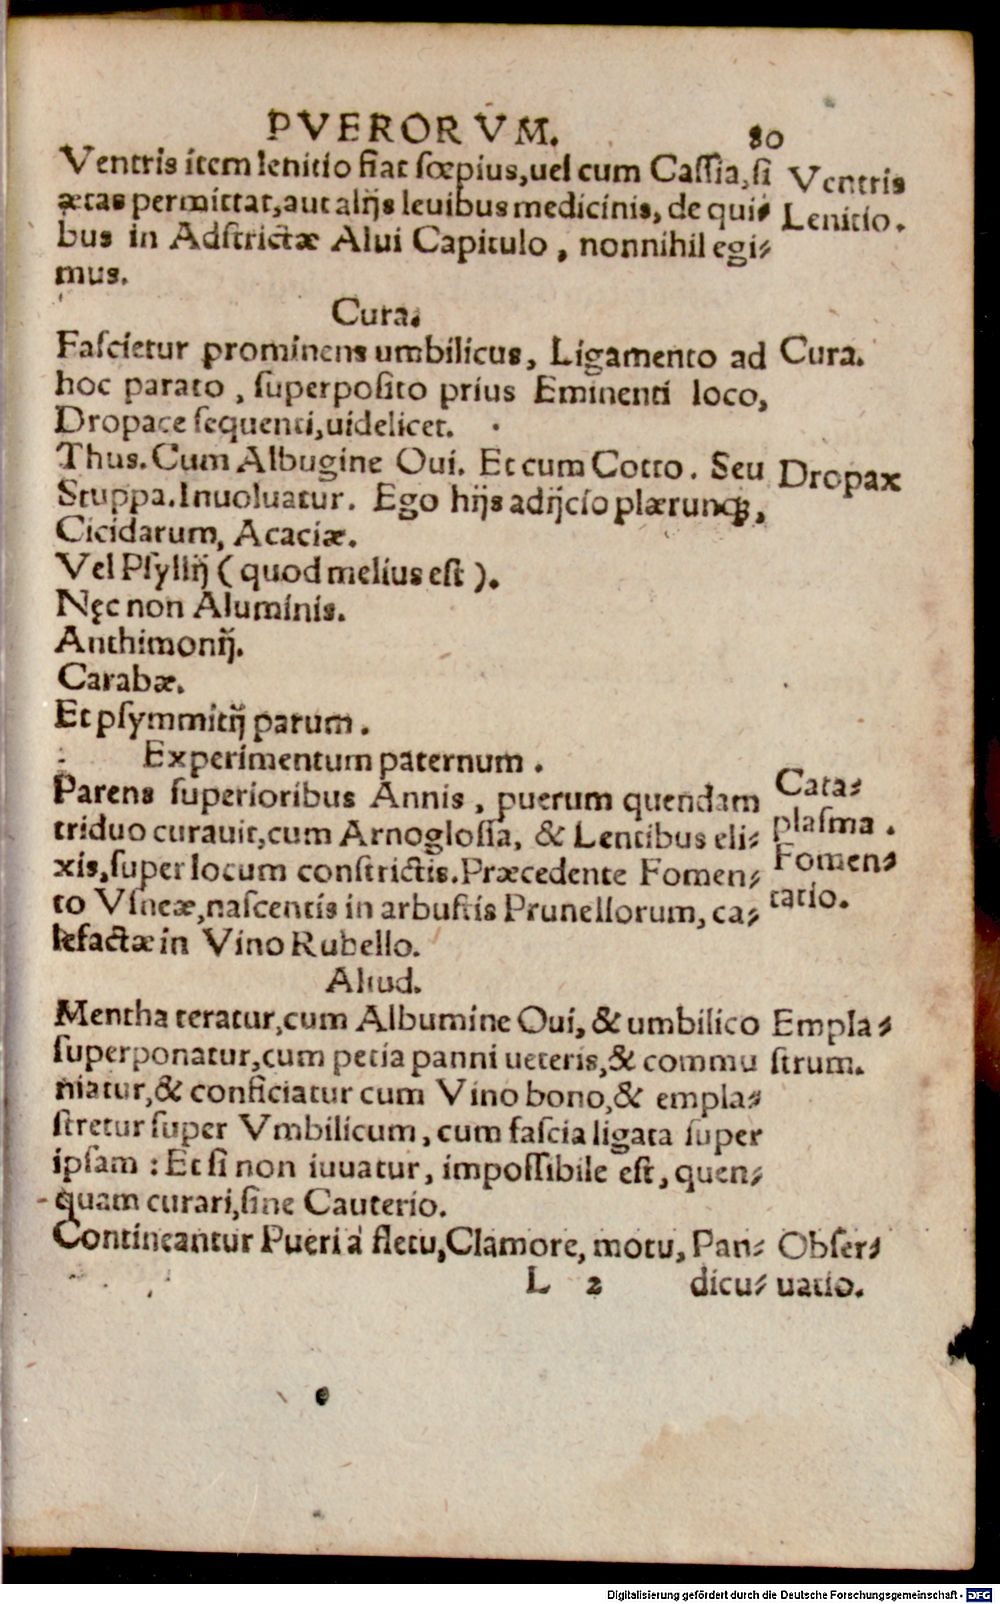 PVERORVM. 80
Ventris item lenitio fiat sœpius,uel cum Cassia,si
ætas permittat,aut alijs leuibus medicinis, de qui-
bus in Adstrictæ Alui Capitulo, nonnihil egi-
mus.
Ventris
Lenitio.
Cura.
Fascietur prominens umbilicus, Ligamento ad
hoc parato, superposito prius Eminenti loco,
Dropace sequenti,uidelicet.
Cura.
Thus.Cum Albugine Oui. Et cum Cotto. Seu
Stuppa.Inuoluatur. Ego hijs adijcio plærunqꝫ,
Dropax
Cicidarum, Acaciæ.
Vel Psyllij (quod melius est).
Nęc non Aluminis.
Anthimonij.
Carabæ.
Et psymmitij parum.
Experimentum paternum.
Parens superioribus Annis, puerum quendam
triduo curauit,cum Arnoglossa, & Lentibus eli-
xis,super locum constrictis.Præcedente Fomen-
to Vsneæ,nascentis in arbustis Prunellorum, ca-
lefactæ in Vino Rubello.
Cata-
plasma.
Fomen-
tatio.
Aliud.
Mentha teratur,cum Albumine Oui, & umbilico
superponatur,cum petia panni ueteris,& commu
niatur,& conficiatur cum Vino bono,& empla-
stretur super Vmbilicum, cum fascia ligata super
ipsam: Et si non iuuatur, impossibile est, quen-
quam curari,sine Cauterio.
Empla-
strum.
Contineantur Pueri à fletu,Clamore, motu, Pan-
L 2 dicu-
Obser-
uatio.
Digitalisierung gefördert durch die Deutsche Forschungsgemeinschaft - DFG